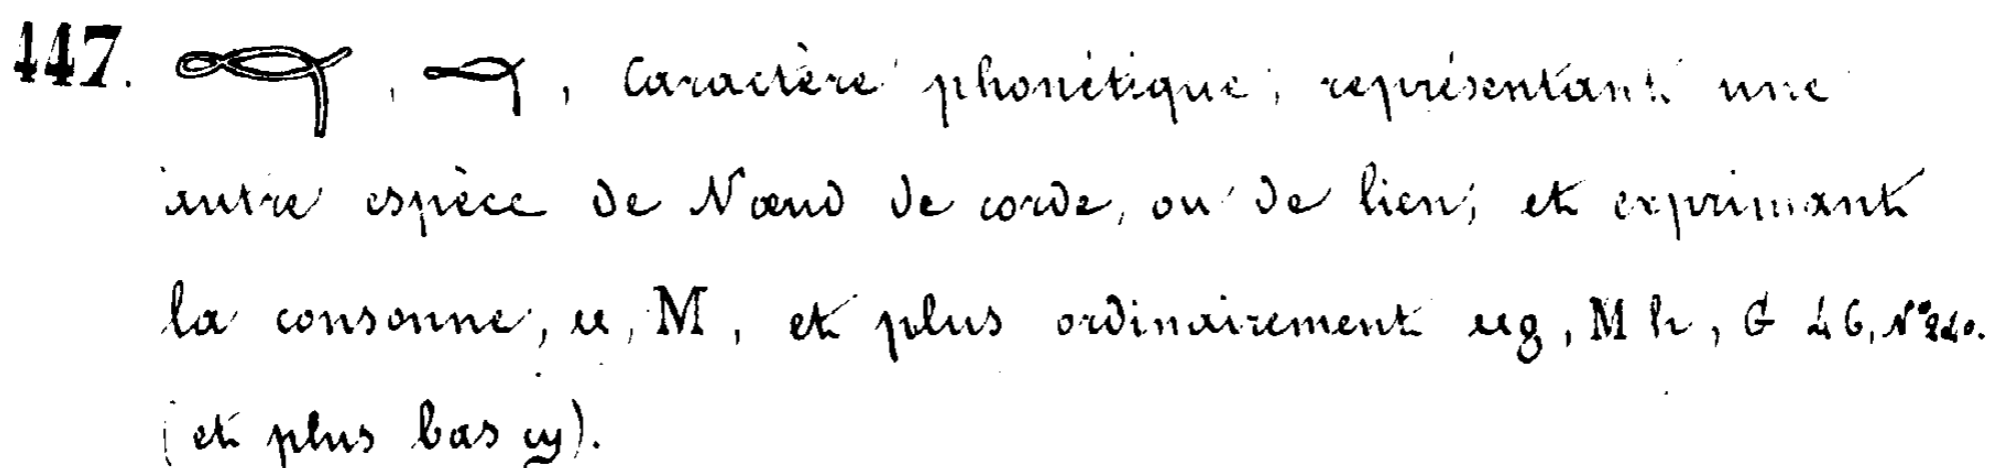 447. 𓍱, 𓍱, Caractère phonétique, représentant une
autre espèce de Nœud de corde, ou de lien; et exprimant
la consonne, ⲙ, M, et plus ordinairement ⲙϩ, Mh, G 46, N° 240.
(et plus bas ϣ).